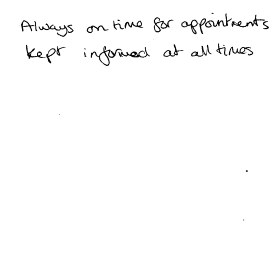 Always on time for appointments
kept informed at all times